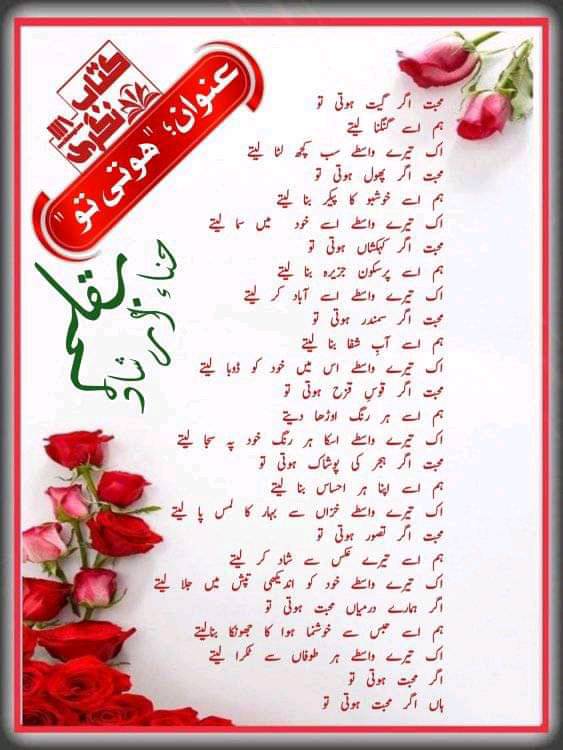 کتاب نگری
عنوان؛ "ہوتی تو"
بقلم
حناء ارشاد
محبت اگر گیت ہوتی تو
ہم اسے گنگنا لیتے
اک تیرے واسطے سب کچھ لٹا لیتے
محبت اگر پھول ہوتی تو
ہم اسے خوشبو کا پیکر بنا لیتے
اک تیرے واسطے اسے خود میں سما لیتے
محبت اگر کہکشاں ہوتی تو
ہم اسے پرسکون جزیرہ بنا لیتے
اک تیرے واسطے اسے آباد کر لیتے
محبت اگر سمندر ہوتی تو
ہم اسے آبِ شفا بنا لیتے
اک تیرے واسطے اس میں خود کو ڈوبا لیتے
محبت اگر قوسِ قزح ہوتی تو
ہم اسے ہر رنگ اوڑھا دیتے
اک تیرے واسطے اسکا ہر رنگ خود پہ سجا لیتے
محبت اگر ہجر کی پوشاک ہوتی تو
ہم اسے اپنا ہر احساس بنا لیتے
اک تیرے واسطے خزاں سے بہار کا لمس پا لیتے
محبت اگر تصور ہوتی تو
ہم اسے تیرے عکس سے شاد کر لیتے
اک تیرے واسطے خود کو اندیکھی تپش میں جلا لیتے
اگر ہمارے درمیاں محبت ہوتی تو
ہم اسے حبس سے خوشنما ہوا کا جھونکا بنالیتے
اک تیرے واسطے ہر طوفاں سے ٹکرا لیتے
اگر محبت ہوتی تو
ہاں اگر محبت ہوتی تو